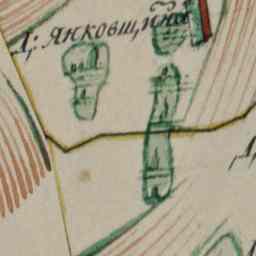 Д: Янковщина
Д